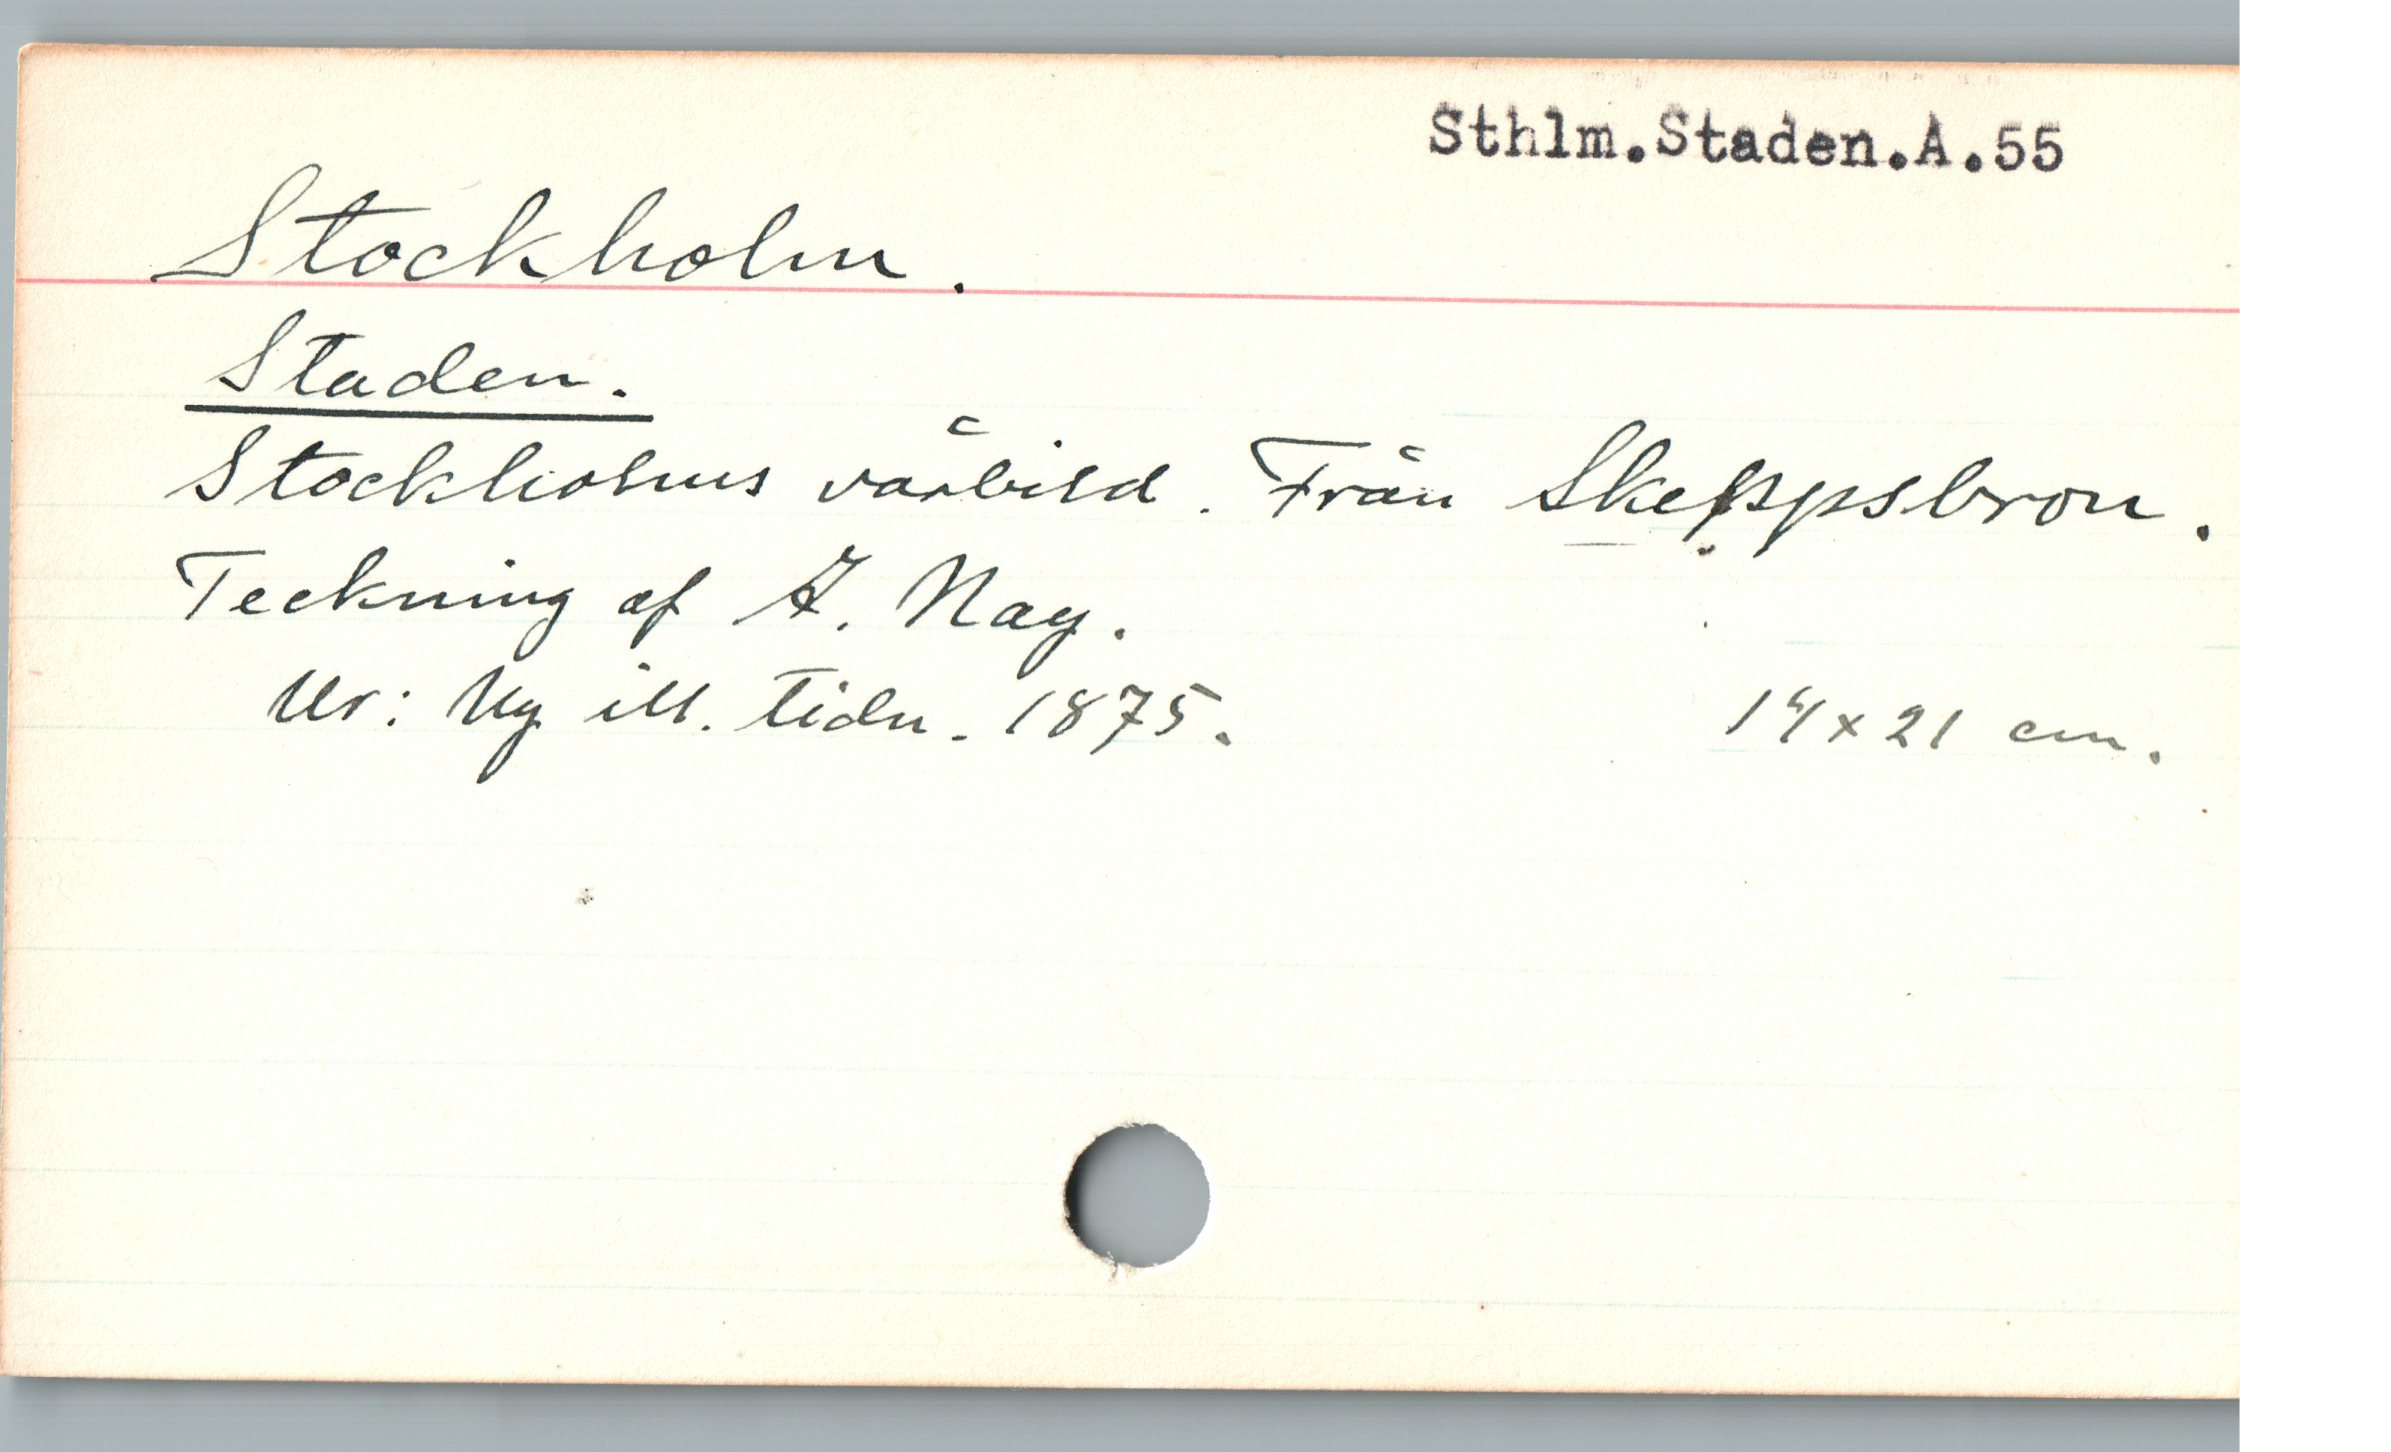 Sthlm.Staden.A.55
Stockholm.
Staden.
Stockholms vårbild. Från Skeppsbron.
Teckning af J. Nay.
Ur: Ny ill. tidn. 1875. 14 x 21 cm.